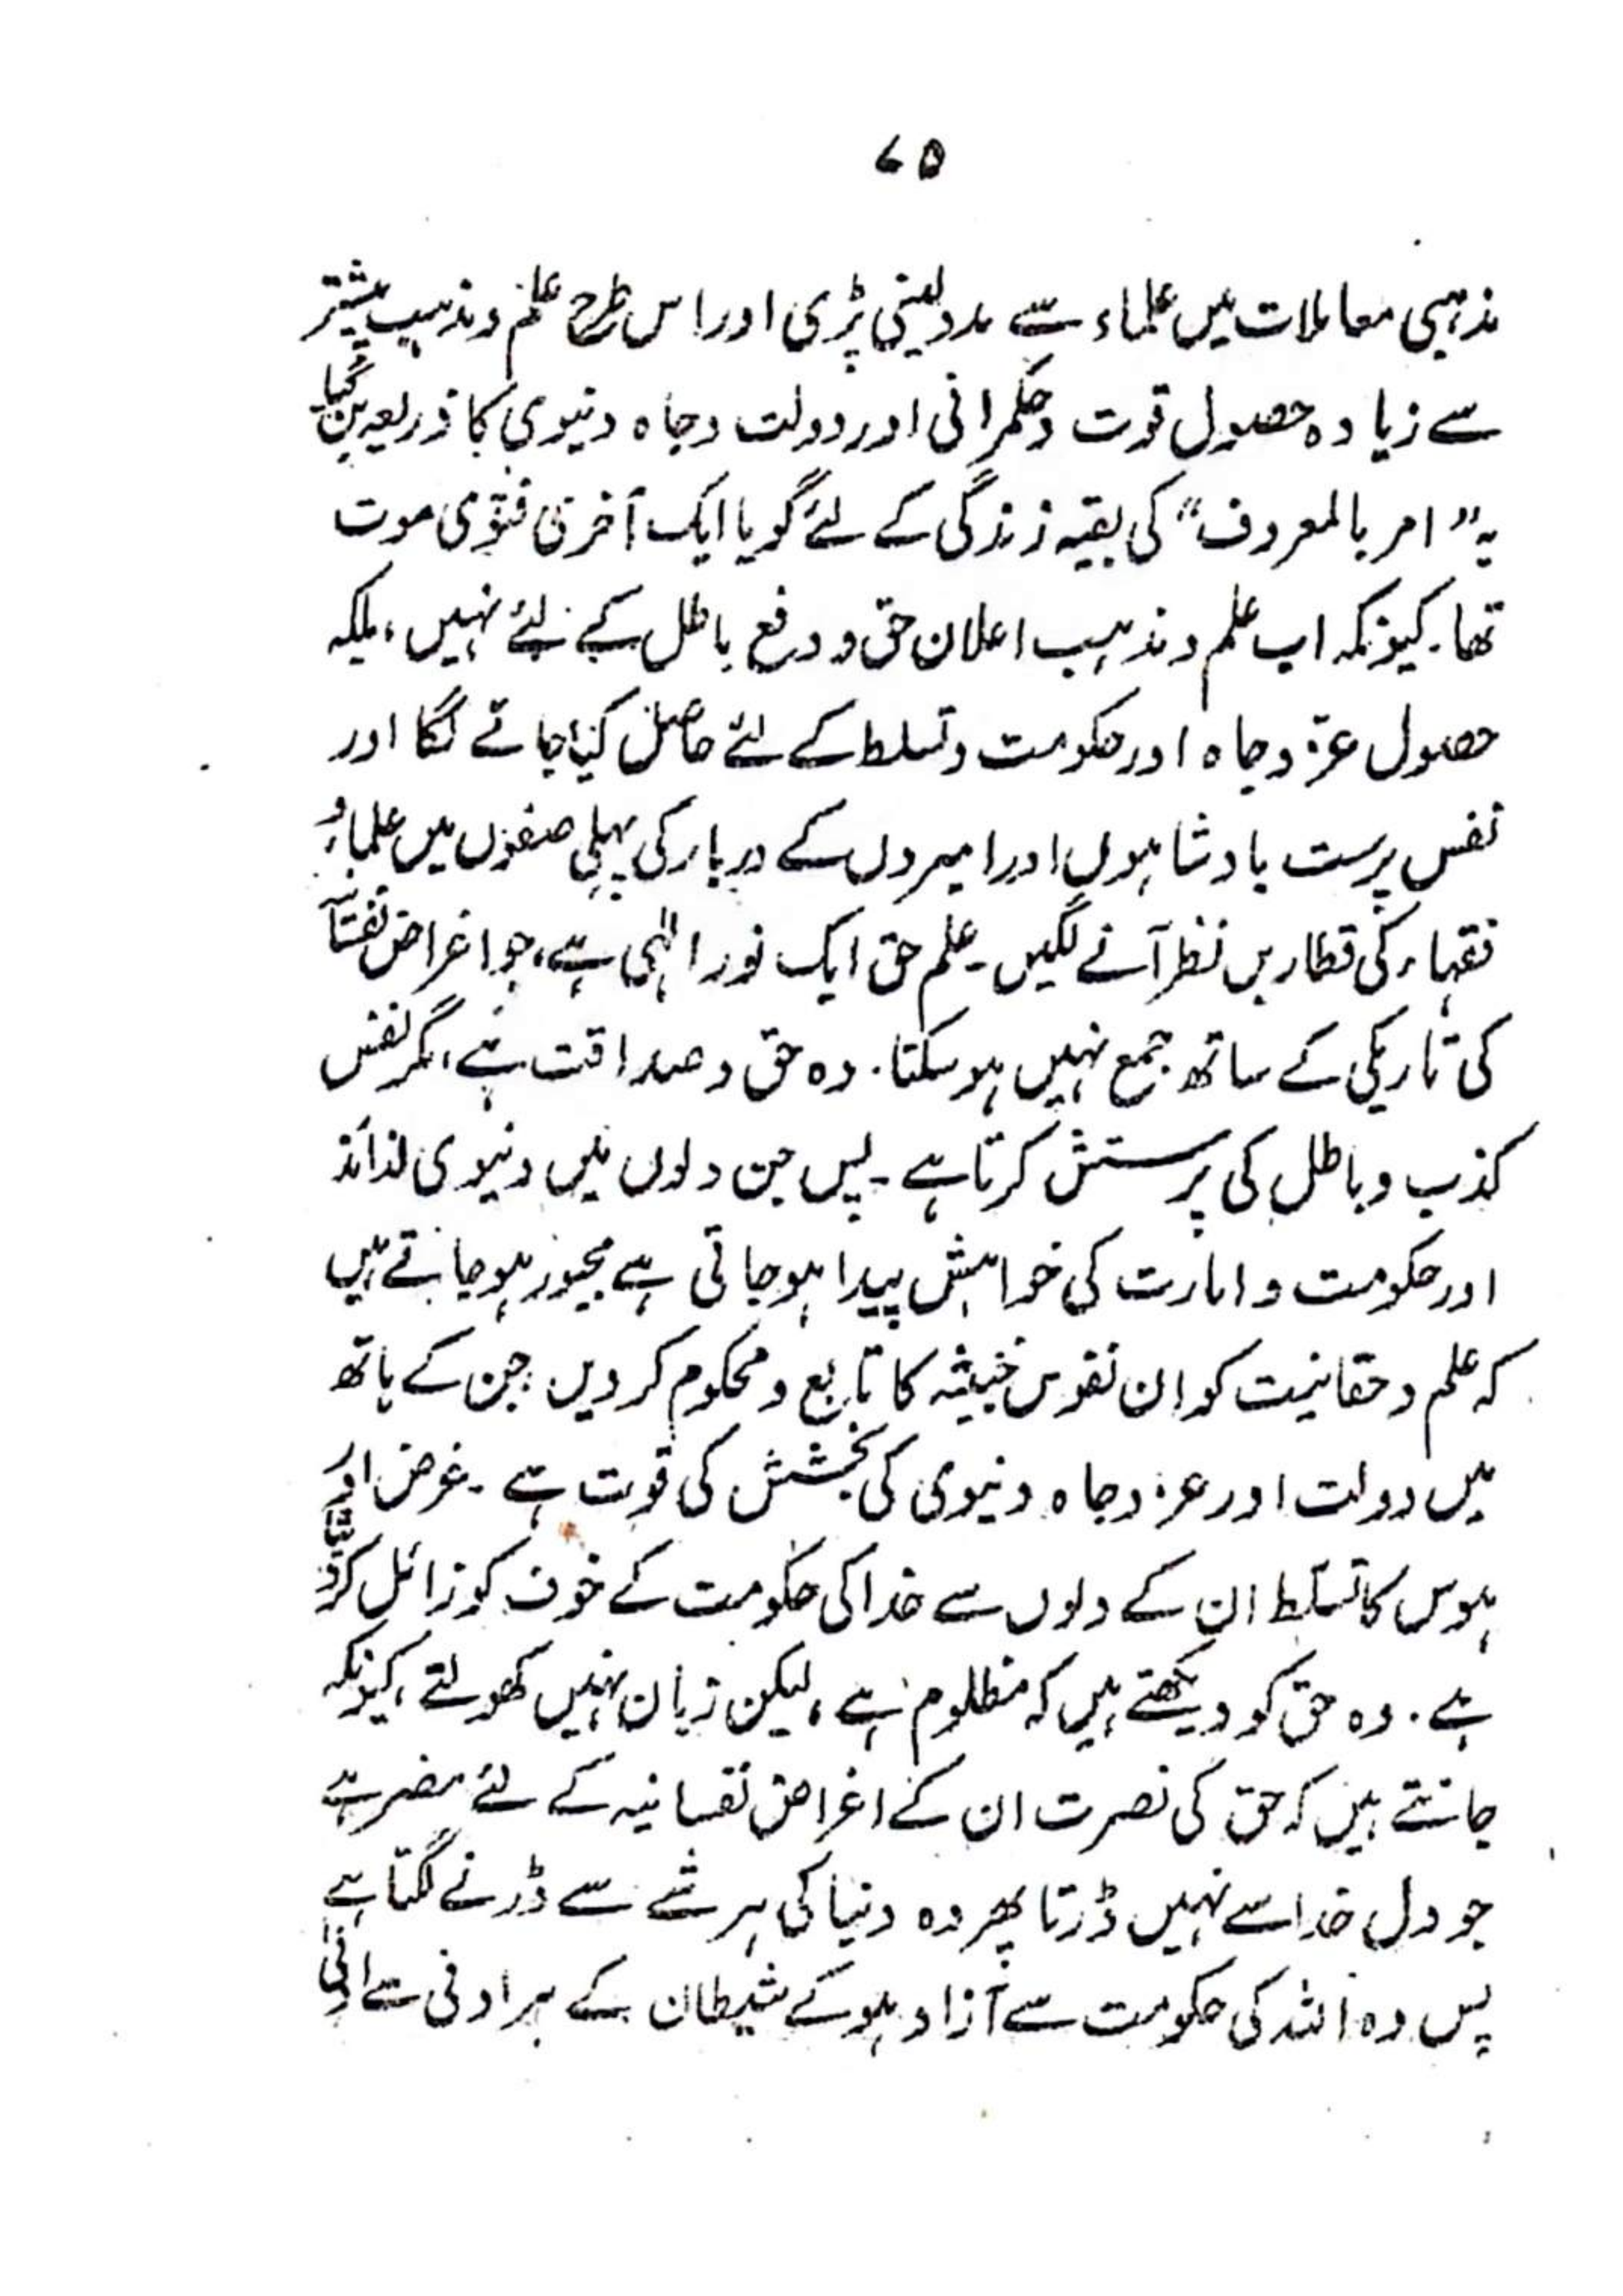 ۷۵
مذہبی معاملات میں علماء سے مدد لینی پڑی اور اس طرح علم و مذہب بیشتر
سے زیادہ حصول قوت و حکمرانی اور دولت و جاہ دنیوی کا ذریعہ بن گیا
یہ "امر بالمعروف" کی بقیہ زندگی کے لئے گویا ایک آخری فتویٰ موت
تھا۔ کیونکہ اب علم و مذہب اعلان حق و دفع باطل کے لئے نہیں، بلکہ
حصول عز و جاہ اور حکومت و تسلط کے لئے حاصل کیا جانے لگا اور
نفس پرست بادشاہوں اور امیروں کے دربار کی پہلی صفوں میں علماء و
فقہاء کی قطاریں نظر آنے لگیں۔ علم حق ایک نور الٰہی ہے، جو اغراض نفسانیہ
کی تاریکی کے ساتھ جمع نہیں ہو سکتا۔ وہ حق و صداقت ہے، مگر نفس
کذب و باطل کی پرستش کرتا ہے۔ پس جن دلوں میں دنیوی لذائذ
اور حکومت و امارت کی خواہش پیدا ہو جاتی ہے مجبور ہو جاتے ہیں
کہ علم و حقانیت کو ان نفوس خبیثہ کا تابع و محکوم کر دیں جن کے ہاتھ
میں دولت اور عز و جاہ دنیوی کی بخشش کی قوت ہے۔ غرض اور
ہوس کا تسلط ان کے دلوں سے خدا کی حکومت کے خوف کو زائل کر دیتا
ہے۔ وہ حق کو دیکھتے ہیں کہ مظلوم ہے، لیکن زبان نہیں کھولتے، کیونکہ
جانتے ہیں کہ حق کی نصرت ان کے اغراض نفسانیہ کے لئے مضر ہے
جو دل خدا سے نہیں ڈرتا پھر وہ دنیا کی ہر شے سے ڈرنے لگتا ہے
پس وہ اللہ کی حکومت سے آزاد ہو کے شیطان کے ہر ادنی سے ادنی